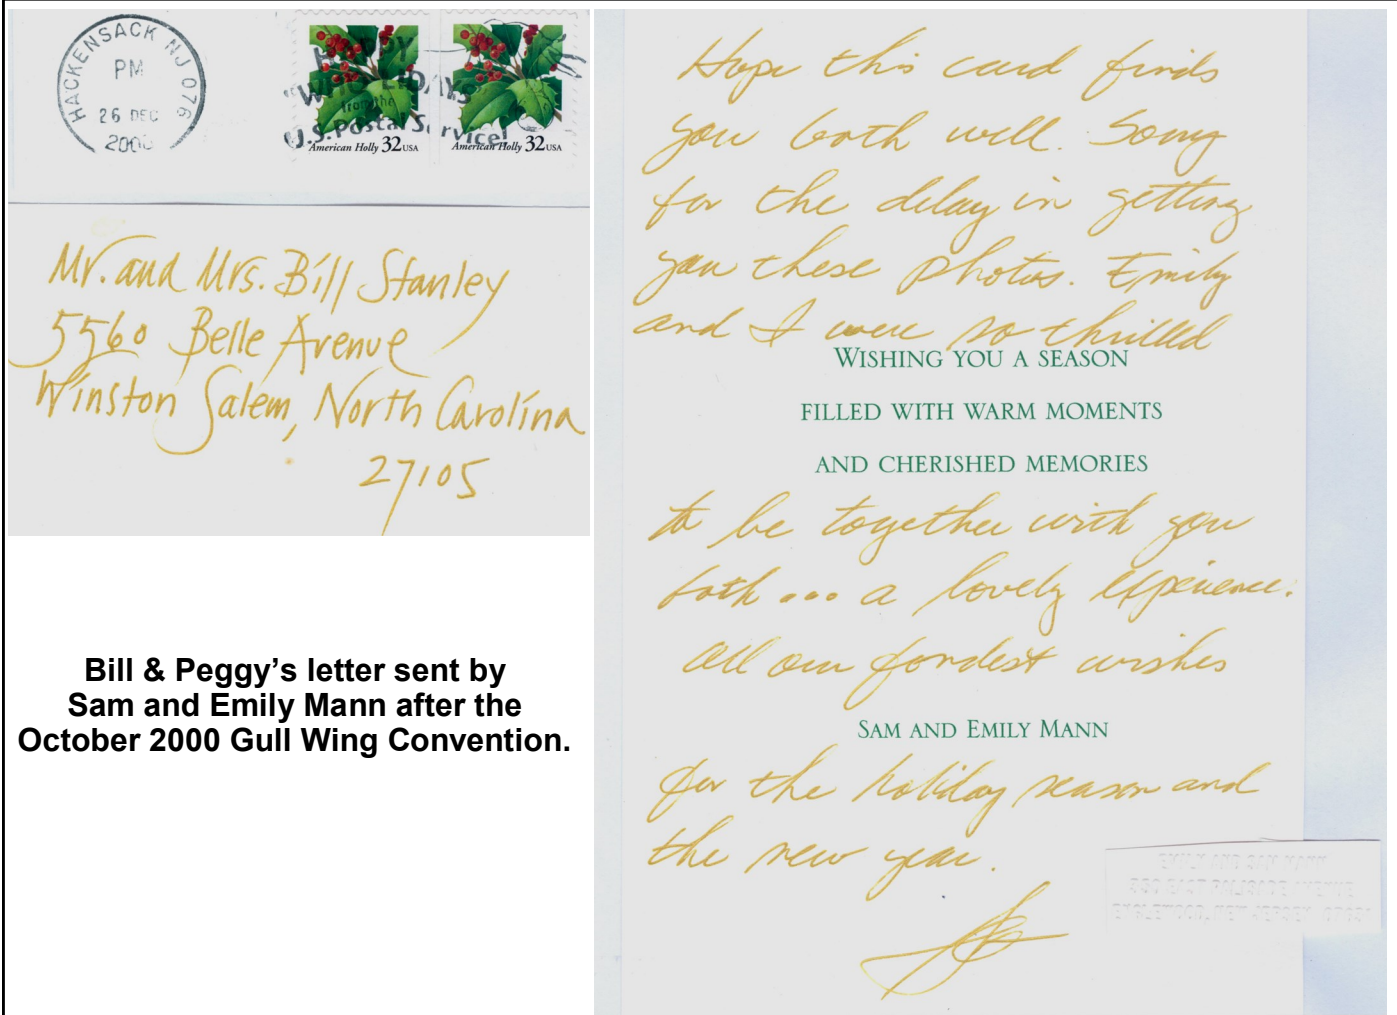 HACKENSACK NJ 076
PM
26 DEC
2000
HAPPY
"WHO"LIDAYS"
from the
U.S. Postal Service!
American Holly 32 USA
American Holly 32 USA
Mr. and Mrs. Bill Stanley
5560 Belle Avenue
Winston Salem, North Carolina
27105
Bill & Peggy's letter sent by
Sam and Emily Mann after the
October 2000 Gull Wing Convention.
Hope this card finds
you both well. Sorry
for the delay in getting
you these photos. Emily
and I were so thrilled
WISHING YOU A SEASON
FILLED WITH WARM MOMENTS
AND CHERISHED MEMORIES
to be together with you
both... a lovely experience.
All our fondest wishes
SAM AND EMILY MANN
for the holiday season and
the new year.
EMILY AND SAM MANN
EAST PALISADE AVENUE
ENGLEWOOD, NEW JERSEY 07631